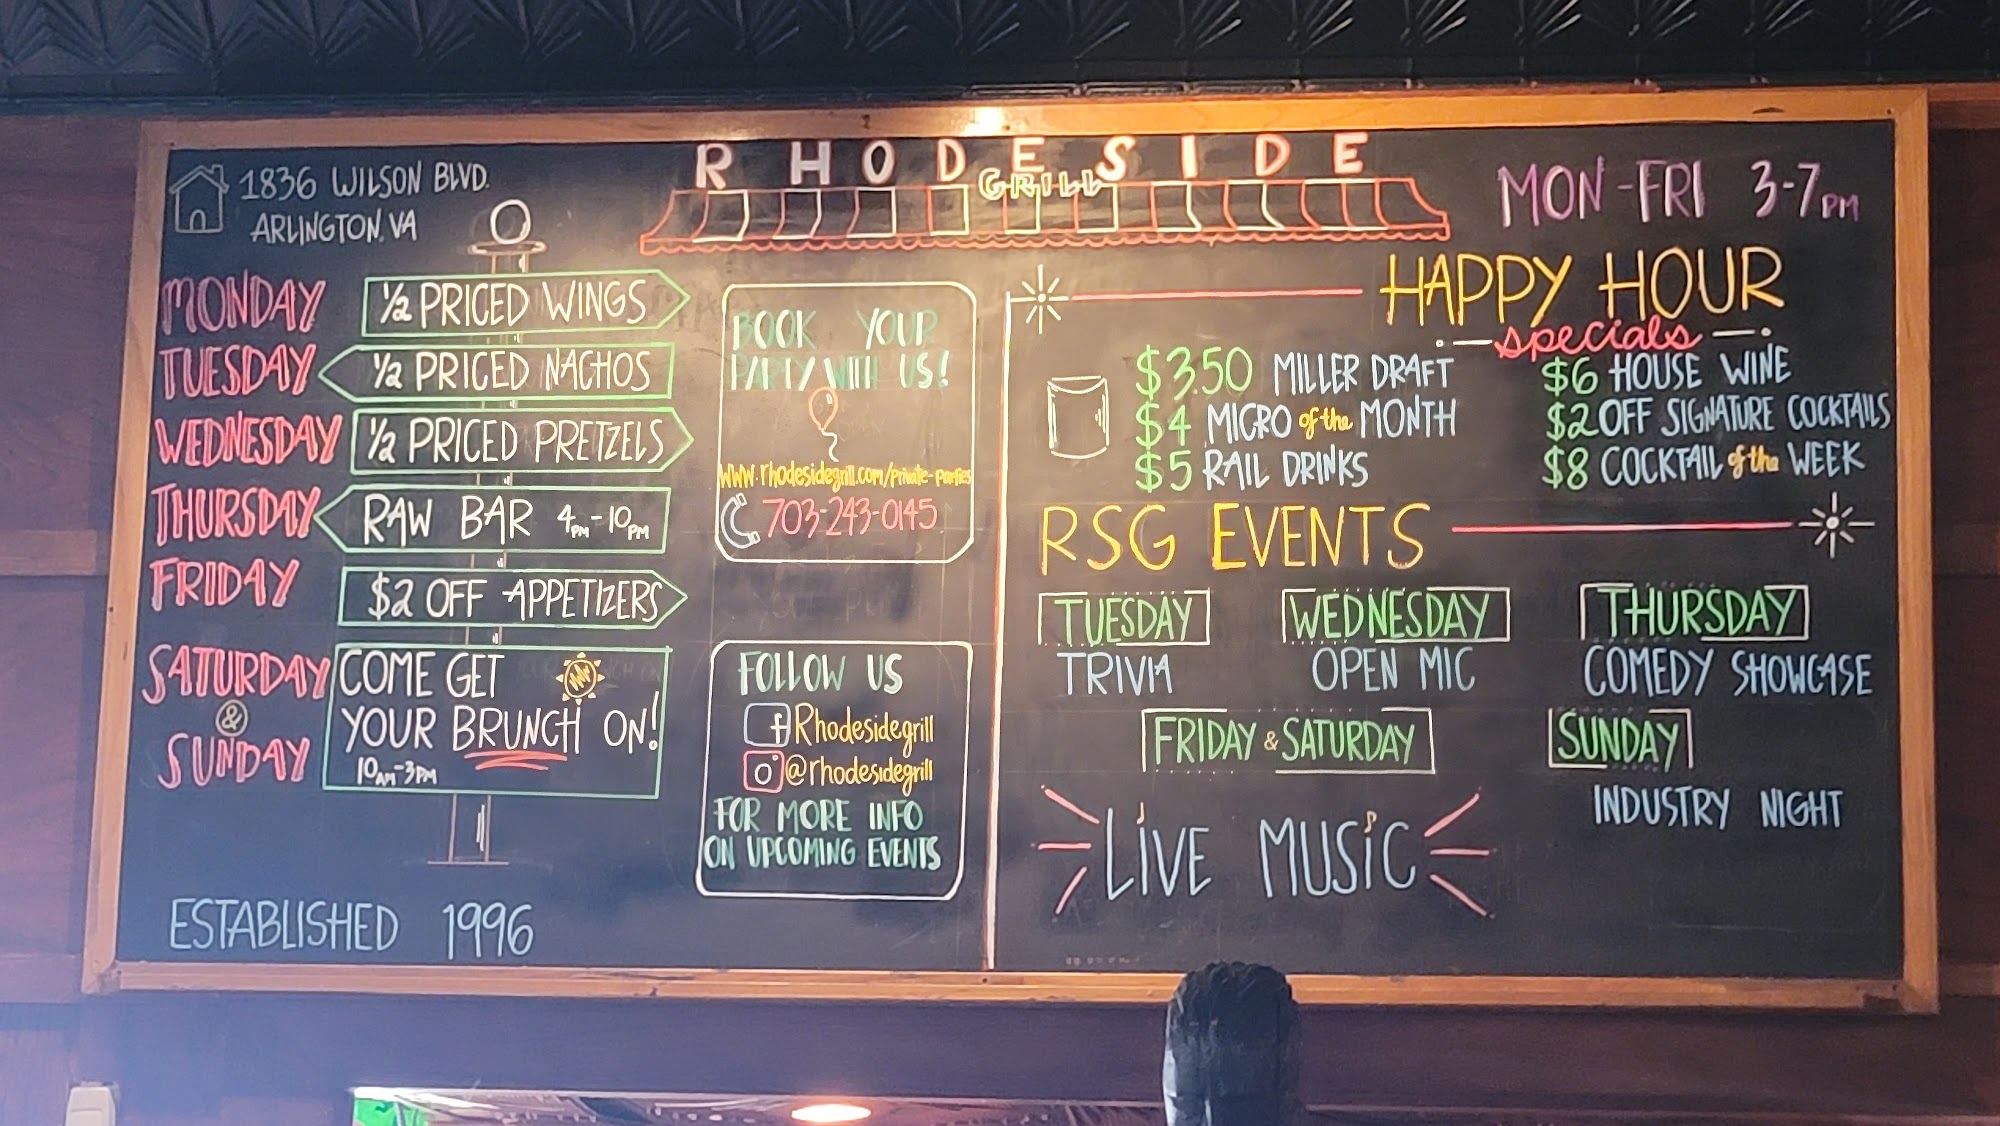 RHODESIDE
GRILL
1836 WILSON BLVD.
ARLINGTON, VA
MONDAY
1/2 PRICED WINGS
TUESDAY
1/2 PRICED NACHOS
WEDNESDAY
1/2 PRICED PRETZELS
THURSDAY
RAW BAR 4PM-10PM
FRIDAY
$2 OFF APPETIZERS
SATURDAY
&
SUNDAY
COME GET
YOUR BRUNCH ON!
10AM-3PM
ESTABLISHED 1996
BOOK YOUR
PARTY WITH US!
www.rhodesidegrill.com/private-parties
703-243-0145
FOLLOW US
f Rhodesidegrill
@rhodesidegrill
FOR MORE INFO
ON UPCOMING EVENTS
MON-FRI 3-7PM
HAPPY HOUR
specials
$3.50 MILLER DRAFT
$4 MICRO of the MONTH
$5 RAIL DRINKS
$6 HOUSE WINE
$2 OFF SIGNATURE COCKTAILS
$8 COCKTAIL of the WEEK
RSG EVENTS
TUESDAY
TRIVIA
WEDNESDAY
OPEN MIC
THURSDAY
COMEDY SHOWCASE
FRIDAY & SATURDAY
LIVE MUSIC
SUNDAY
INDUSTRY NIGHT